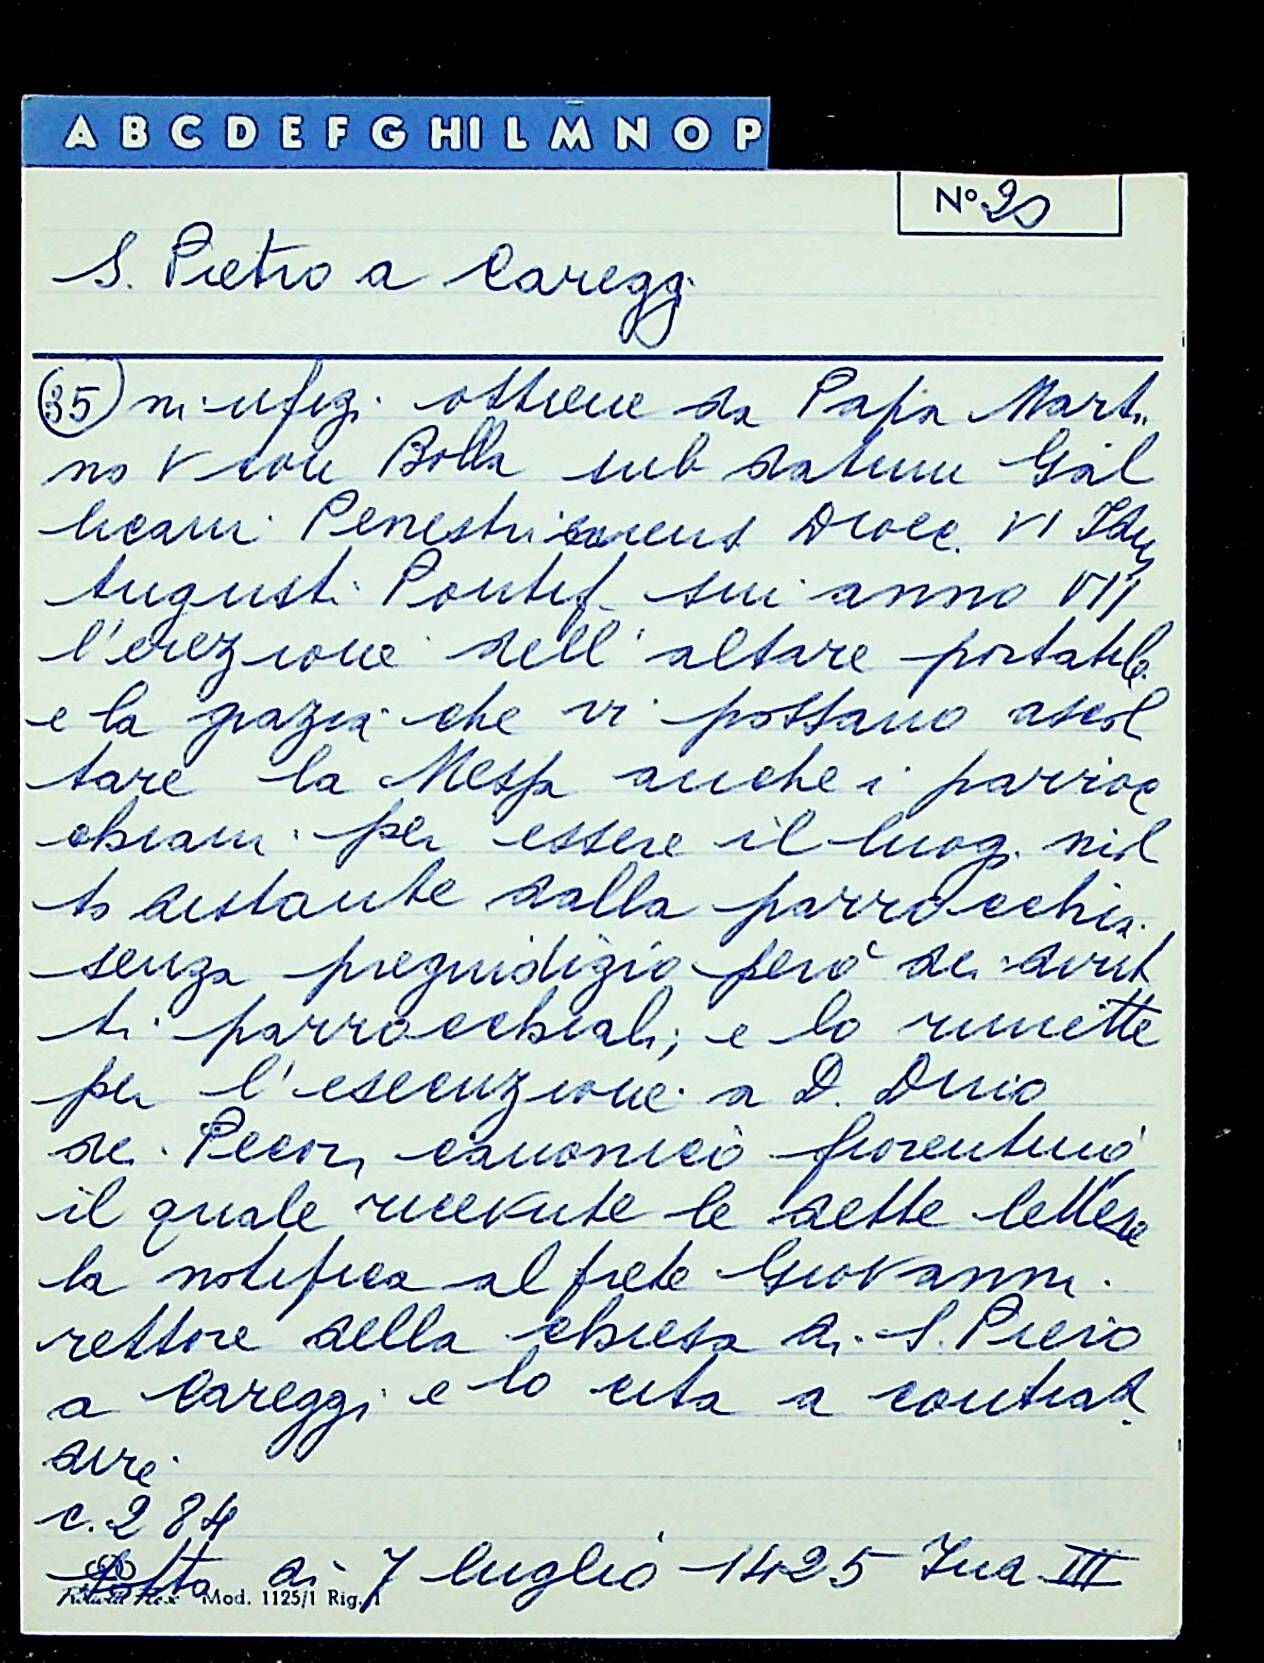 A B C D E F G HI L M N O P
Nº 20
S. Pietro a Careggi
35) ni ufizi. ottiene da Papa Marti
no V con Bolla sub datum Gal
licani Penestrinens Dioec. VI Idus
Augusti Pontif. sui anno VII
l'erezione dell'altare portatile
e la grazia che vi possano ascol
tare la Messa anche i parroc
chiani per essere il luogo mol
to distante dalla parrocchia
senza pregiudizio però dei dirit
ti parrocchiali; e lo rimette
per l'esecuzione a D.
dei Pecori canonico fiorentino
il quale ricevute le dette lettere
la notifica al prete Giovanni
rettore della chiesa di S. Piero
a Careggi e lo cita a contrad
dire.
c. 284
di 7 luglio 1425 III
Mod. 1125/1 Rig. 1